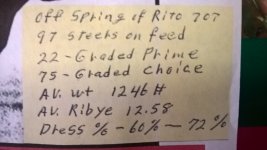 Off Spring of Rito 707
97 Steers on feed
22 - Graded Prime
75 - Graded Choice
AV. wt 1246 #
AV. Ribye 12.58
Dress % - 60% - 72%